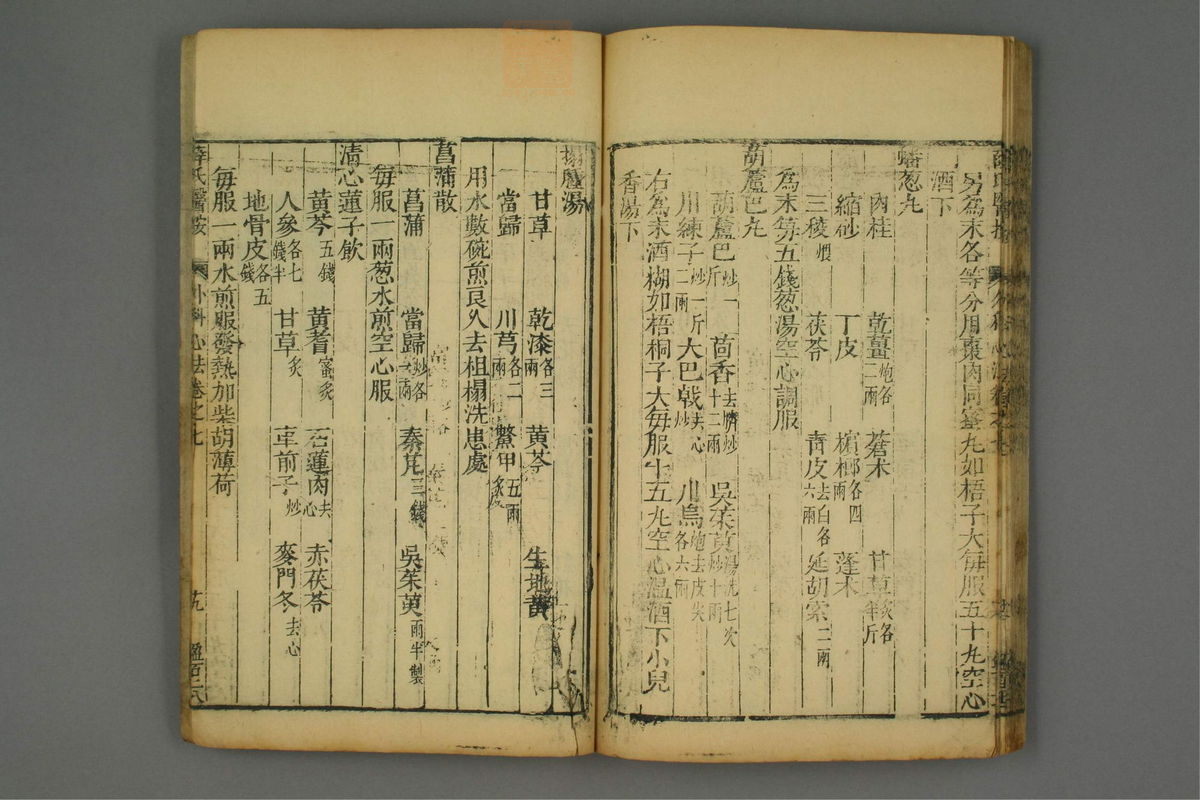 另為末各等分用棗肉同蜜丸如梧子大每服五十丸空心
酒下
蟠葱丸
肉桂 乾薑炮各二兩 蒼朮 甘草炙各半斤
縮砂 丁皮 檳榔各四兩 蓬朮
三稜煨 茯苓 青皮去白各六兩 延胡索二兩
為末每五錢葱湯空心調服
葫蘆巴丸
葫蘆巴炒一斤 茴香去臍炒十二兩 吳茱萸湯洗七次炒十兩
川練子炒一斤二兩 大巴戟去心炒 川烏炮去皮尖各六兩
右為末酒糊如梧桐子大每服十五丸空心溫酒下小兒
香湯下
搨 湯
甘草 乾漆各三兩 黃芩 生地黃
當歸 川芎各二兩 鱉甲五兩炙
用水數碗煎良久去柤搨洗患處
菖蒲散
菖蒲 當歸炒各一兩 秦艽三錢 吳茱萸兩半製
每服一兩葱水煎空心服
清心蓮子飲
黃芩五錢 黃耆蜜炙 石蓮肉去心 赤茯苓
人參各七錢半 甘草炙 車前子炒 麥門冬去心
地骨皮各五錢
每服一兩水煎服發熱加柴胡薄荷
薛氏醫按 外科心法卷之七